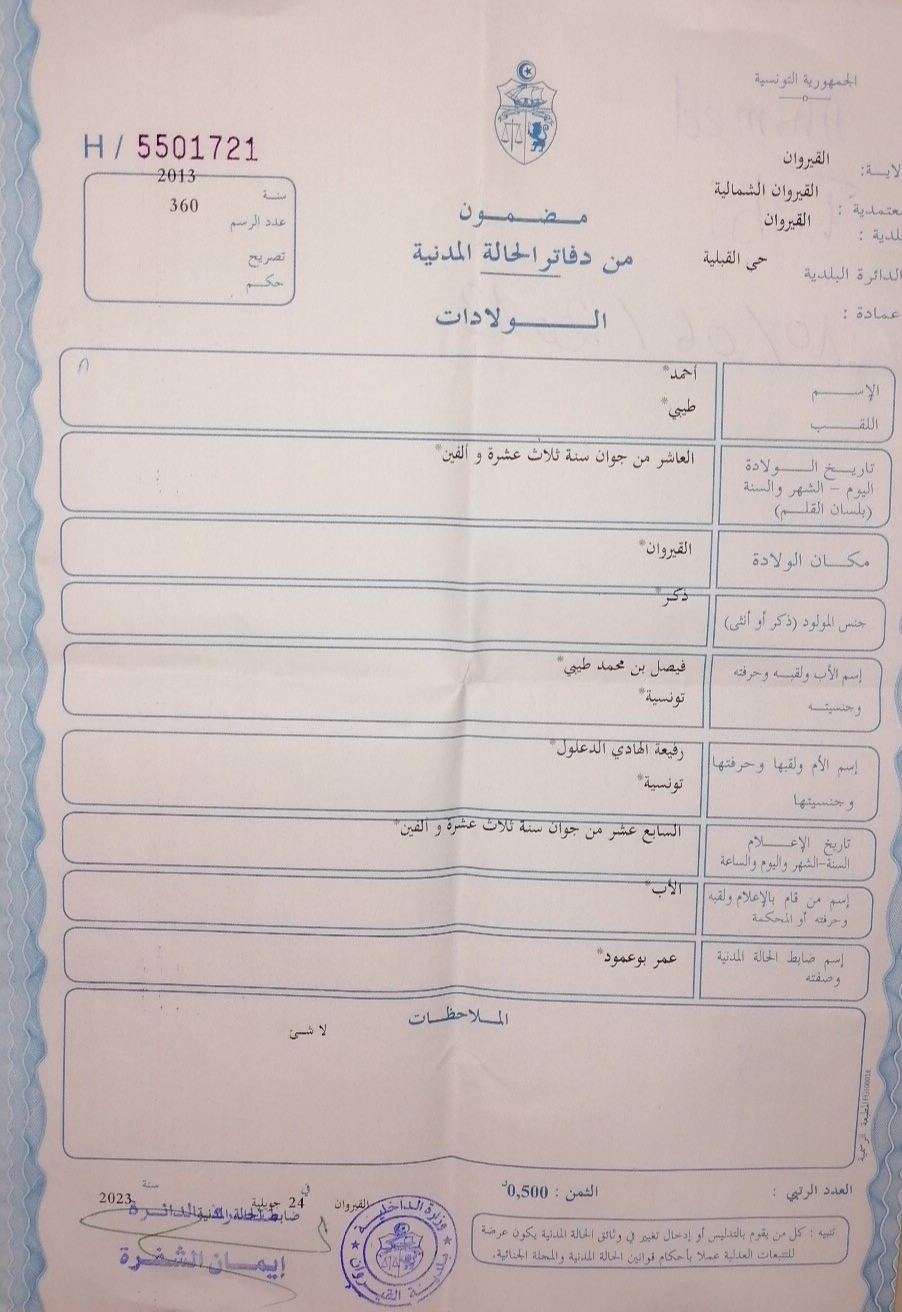 الجمهورية التونسية
H / 5501721
لاية: القيروان
عتمدية : القيروان الشمالية
لدية : القيروان
الدائرة البلدية حي القبلية
عمادة :
سنة 2013
عدد الرسم 360
تصريح
حكم
مضمون
من دفاتر الحالة المدنية
الولادات
الإسم أحمد*
اللقب طيبي*
تاريخ الولادة العاشر من جوان سنة ثلاث عشرة و ألفين*
اليوم - الشهر والسنة
(بلسان القلم)
مكان الولادة القيروان*
جنس المولود (ذكر أو أنثى) ذكر*
إسم الأب ولقبه وحرفته فيصل بن محمد طيبي*
وجنسيته تونسية*
إسم الأم ولقبها وحرفتها رفيعة الهادي الدعلول*
وجنسيتها تونسية*
تاريخ الإعلام السابع عشر من جوان سنة ثلاث عشرة و ألفين*
السنة-الشهر واليوم والساعة
إسم من قام بالإعلام ولقبه الأب*
وحرفته أو المحكمة
إسم ضابط الحالة المدنية عمر بوعمود*
وصفته
الملاحظات
لا شئ
العدد الرتبي :
الثمن : 0,500د
القيروان في 24 جويلية سنة 2023
ضابط الحالة المدنية
إيمان الشفرة
وزارة الداخلية
بلدية القيروان
تنبيه : كل من يقوم بالتدليس أو إدخال تغيير في وثائق الحالة المدنية يكون عرضة
للتتبعات العدلية عملا بأحكام قوانين الحالة المدنية والمجلة الجنائية.